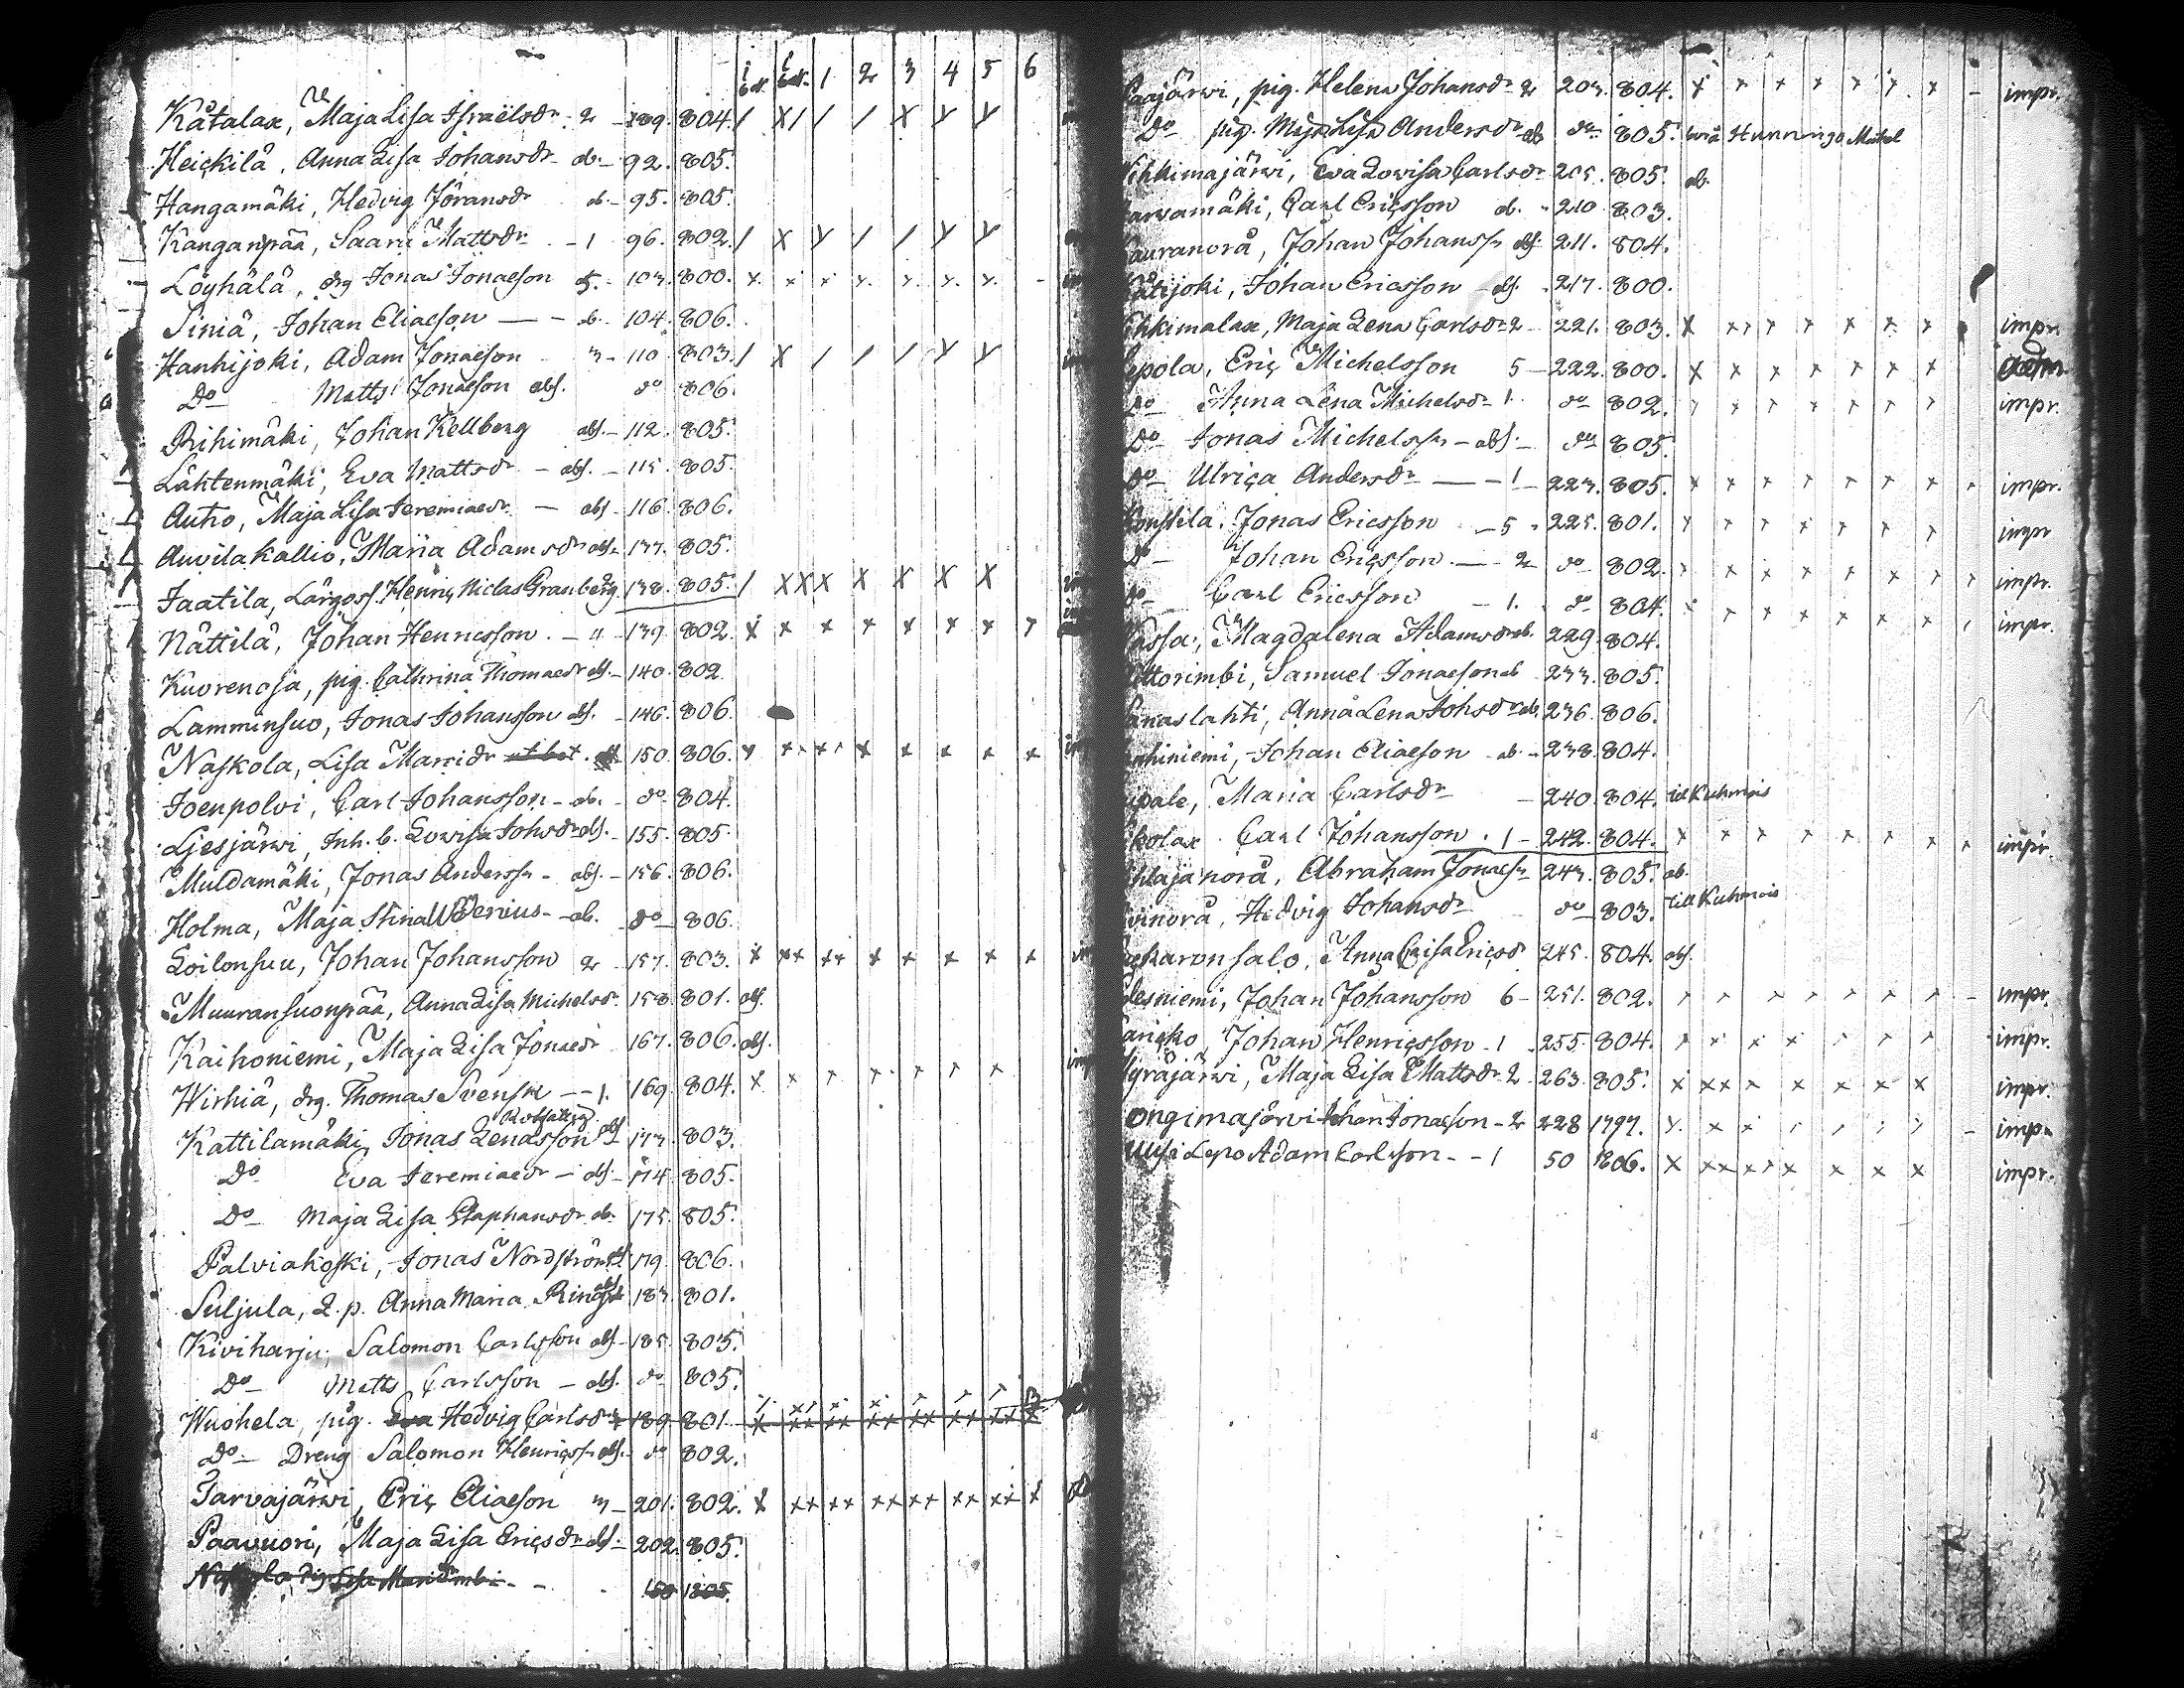 1 2 3 4 5 6
Kåtalax, Maja Lisa Israëlsdr. 2 - 189. 804.
Heickilä, Anna Lisa Johansdr - ab. - 92. 805.
Hangamäki, Hedvig Jöransdr ab. - 95. 805.
Kanganpää, Saara Mattsdr - 1 96. 802.
Löyhälä, drg Jonas Jonaeson 5. - 103. 800.
Siniä, Johan Eliaeson - ab. 104. 806.
Hanhijoki, Adam Jonaeson 3 - 110. 803.
Do Matts Jonaeson abs. do 806.
Riihimäki, Johan Kellberg abs. - 112. 805.
Lähtenmäki, Eva Mattsdr - abs. - 115. 805.
Autio, Maja Lisa Jeremiaedr - abs - 116. 806.
Auvilakallio, Maria Adamsdr abs. 137. 805.
Jaatila, Lärgoss. Henric Niclas Granberg 2 138. 805.
Nättilä, Johan Henricsson. - 4 - 139. 802.
Kuorenoja, pig. Cathrina Thomaedr abs. - 140. 802
Lamminsuo, Jonas Johansson abs. - 146. 806.
Naskola, Lisa Mariedr 150. 806.
Joenpolvi, Carl Johansson - ab. - do 804.
Ljesjärvi, Inh. b. Lovisa Johsdr abs. - 155. 805.
Muldamäki, Jonas Anderss. - abs. - 156. 806.
Holma, Maja Stina Widenius - ab. do 806.
Loilonsuu, Johan Johansson 2 - 157. 803.
Muuransuonpää, Anna Lisa Michelsdr. 158. 801. abs.
Kaihoniemi, Maja Lisa Jonaedr 167. 806. abs.
Wirhiä, drg. Thomas Svensk - - 1. 169. 804.
Kattilamäki, Jonas Lenasson abs 173. 803.
Do Eva Jeremiaedr - abs - 174. 805.
Do Maja Lisa Staphansdr ab. 175. 805.
Palviakoski, Jonas Nordström abs 179. 806.
Suljula, L. p. Anna Maria 183. 801.
Kiviharju, Salomon Carlsson abs - 185. 805.
Do Matts Carlsson - abs. do 805.
Wuohela, pig. Eva Hedvig Carlsdr 189 801
Do - Dreng Salomon Henricss. abs. - do 802.
Jarvajärvi, Eric Eliaeson 3 - 201. 802.
Paavuori, Maja Lisa Ericsdr abs. - 202. 805.
150 1805.
aajärvi, pig. Helena Johansdr 2 203. 804. impr.
Do pig. Maja Lisa Andersdr ab do 805.
ihkimajärvi, Eva Lovisa Carlsdr 205. 805. ab.
arvamäki, Carl Ericsson ab. - 210. 803.
auranorå, Johan Johanss. abs. 211. 804.
ätijoki, Johan Ericsson - abs. - 217. 800.
ihkimalax, Maja Lena Carlsdr 2 - 221. 803. impr
epola, Eric Michelsson 5 - 222. 800.
Do Anna Lena Michelsdr 1 do 802. impr.
Do Jonas Michelss. - abs. - do 805.
Do Ulrica Andersdr - 1 - 223. 805. impr.
onstila, Jonas Ericsson - 5 - 225. 801. impr
Do Johan Ericsson - 2 do 802. impr.
Do Carl Ericsson - 1. do 804. impr.
assa, Magdalena Adamsdr ab. 229. 804.
ttorimbi, Samuel Jonaeson ab 233. 805.
anaslahti, Anna Lena Johsdr ab. 236. 806.
nhiniemi, Johan Eliaeson ab. - 238. 804.
ipale, Maria Carlsdr - 240. 804. till Kuhmois
kolax Carl Johansson. 1 - 242. 804. impr.
htajanorå, Abraham Jonaess 243. 805. ab.
vinorå, Hedvig Johansdr do 803. till Kuhmois
karonsalo, Anna Caisa Ericsdr 245. 804. abs.
desniemi, Johan Johansson 6 - 251. 802. impr.
aricko, Johan Henricsson - 1 - 255. 804. impr.
yräjärvi, Maja Lisa Mattsdr 2 263. 805. impr.
ongimajärvi Johan Jonaeson - 2 228 1797. impr
Uusi Lepo Adam Carlsson - - 1 50 1806. impr.